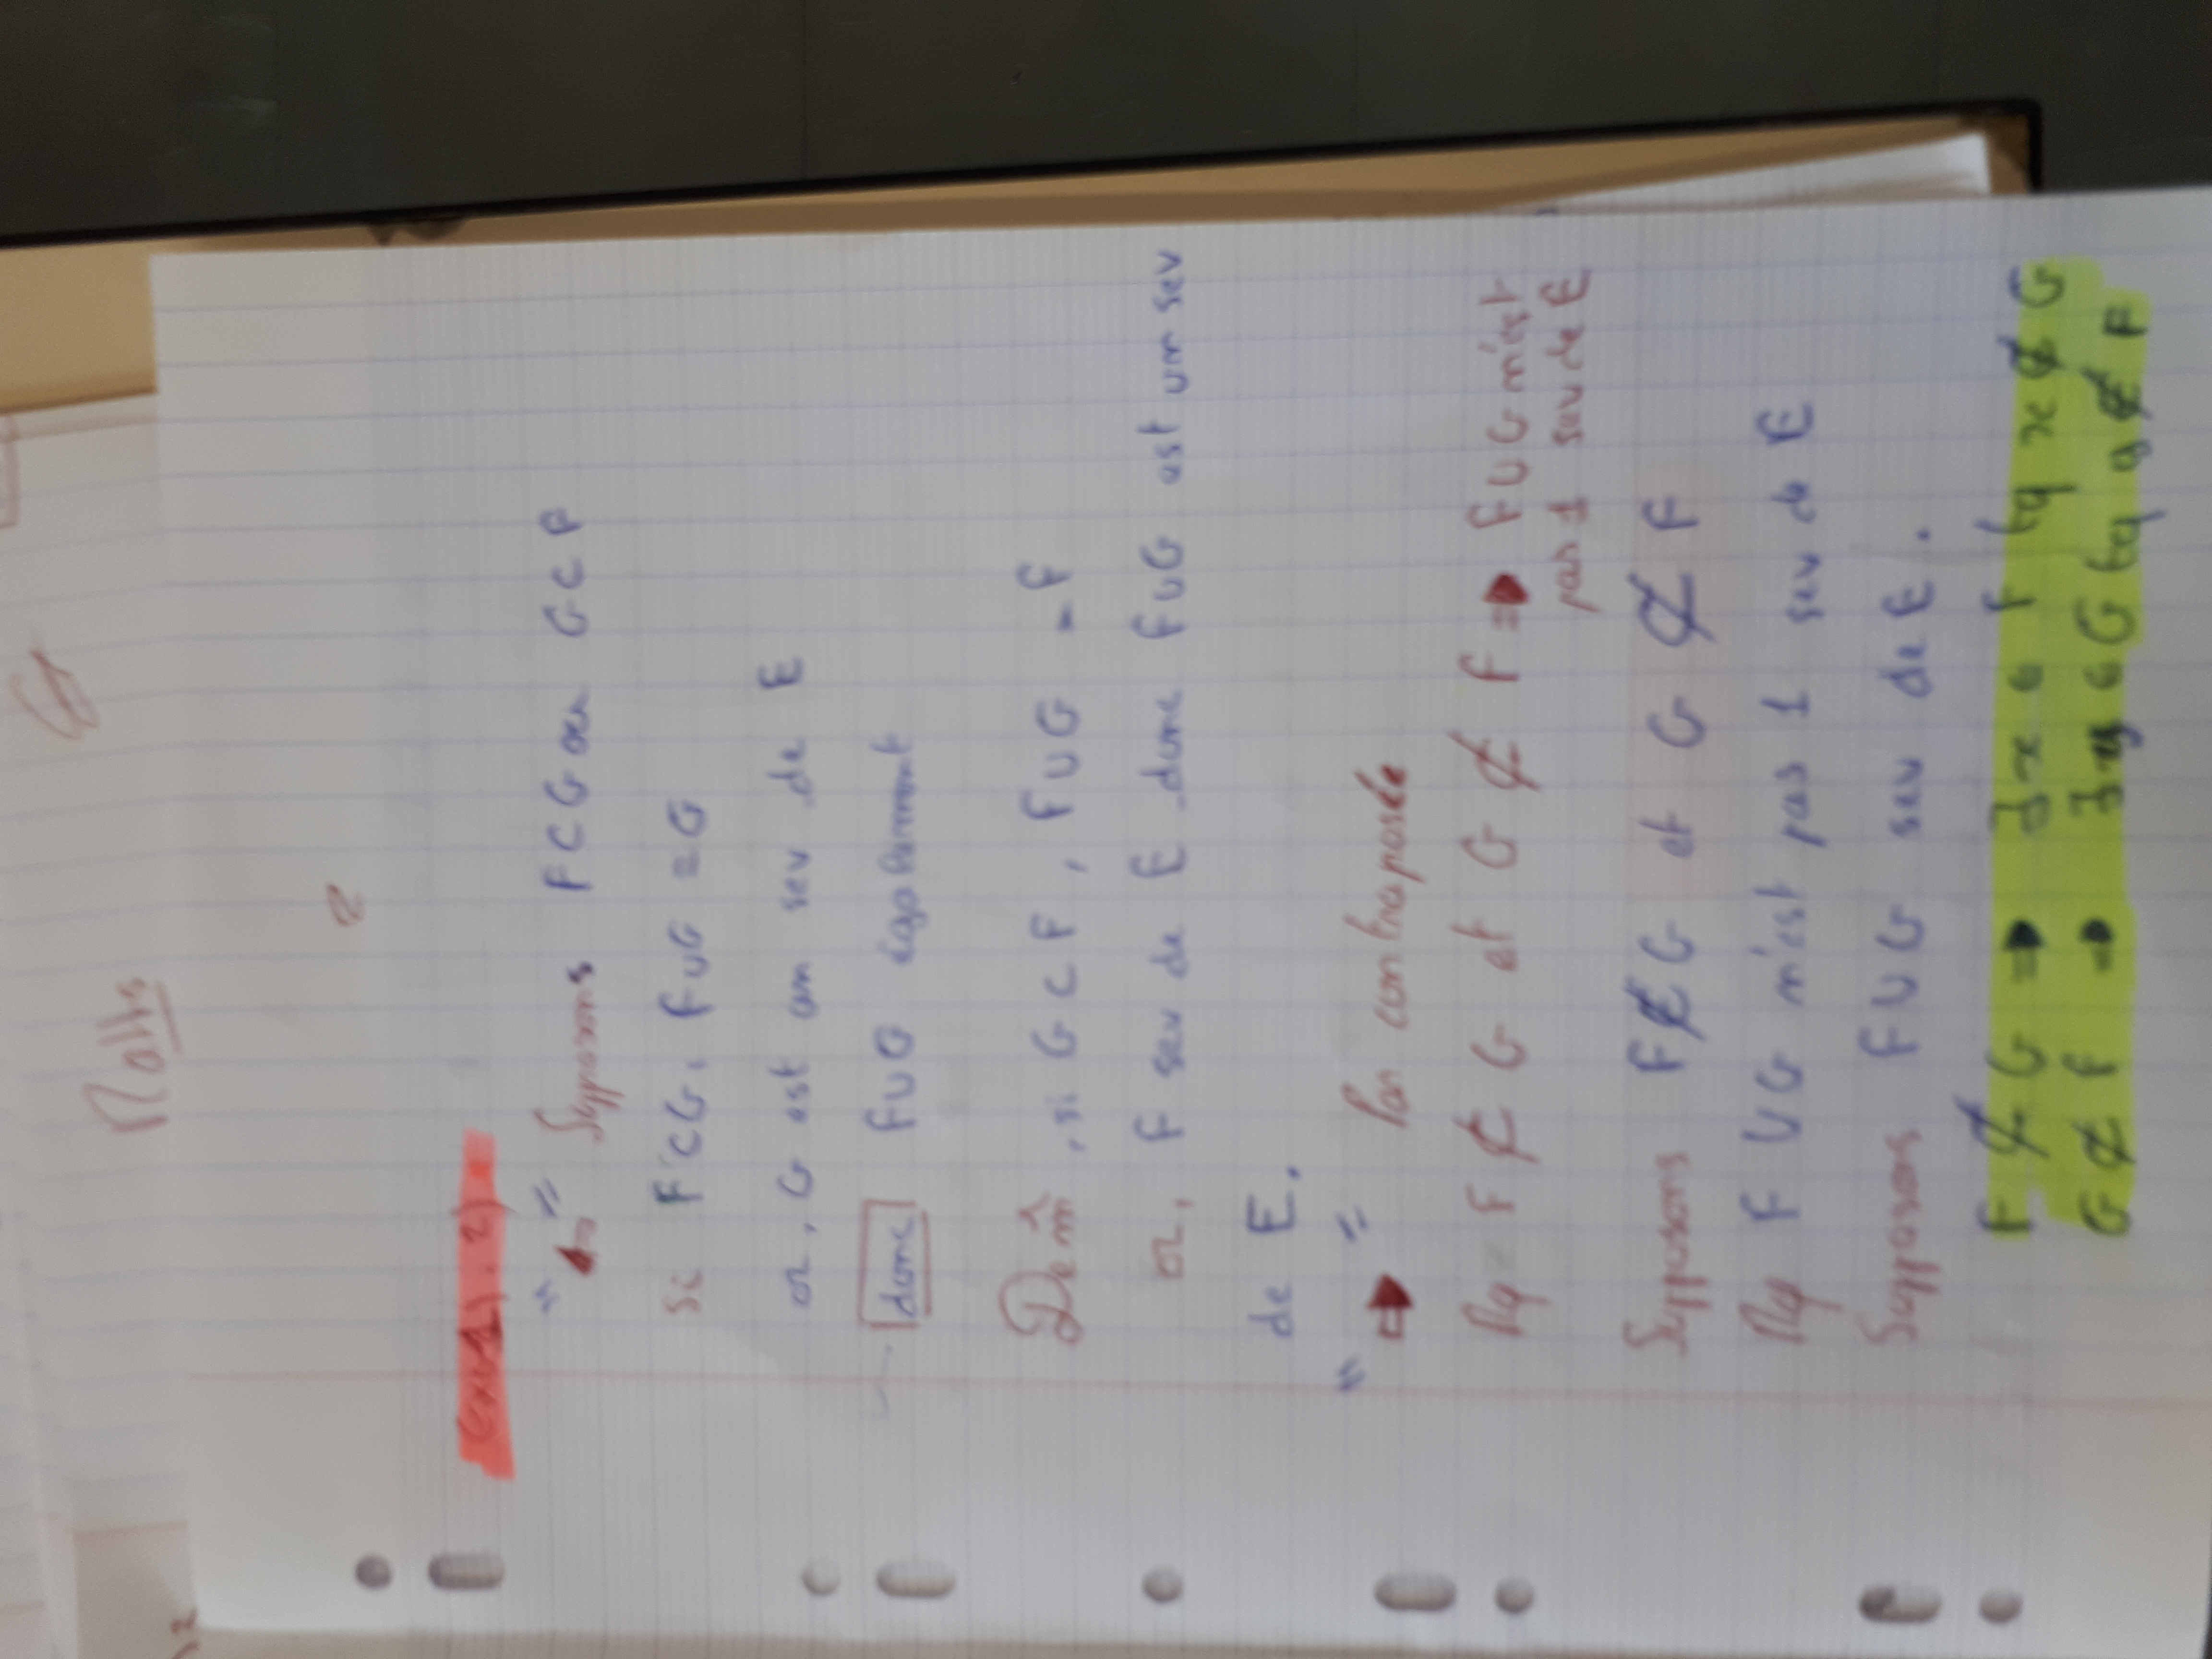 Maths
exo 1). 2)
"⇐" Supposons F⊂G ou G⊂F
si F⊂G, F∪G = G
or, G est un sev de E
donc F∪G également
De m̂, si G⊂F, F∪G = F
or, F sev de E donc F∪G est un sev
de E.
"⇒" Par contraposée
Mq F⊄G et G⊄F ⇒ F∪G n'est
pas 1 sev de E
Supposons F⊄G et G⊄F
Mq F∪G n'est pas 1 sev de E
Supposons F∪G sev de E.
F⊄G ⇒ ∃x∈F tq x∉G
G⊄F ⇒ ∃y∈G tq y∉F